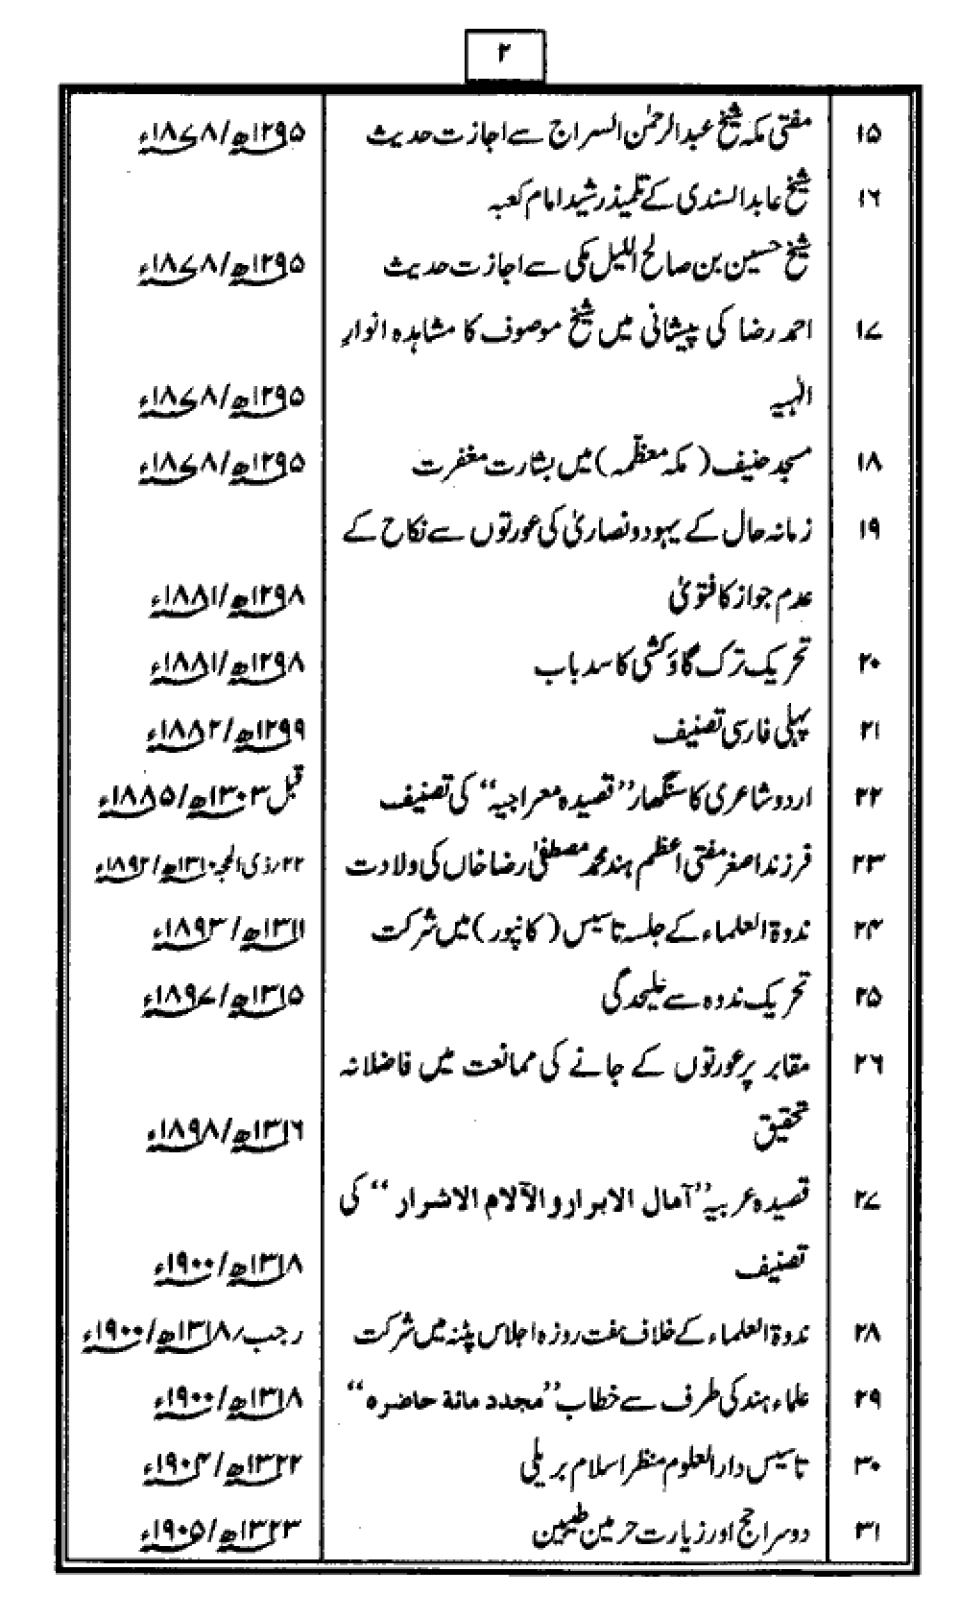 ۲
۱۵ مفتی مکہ شیخ عبدالرحمٰن السراج سے اجازت حدیث ۱۲۹۵ھ/۱۸۷۸ء
۱۶ شیخ عابد السندی کے تلمیذ رشید امام کعبہ
شیخ حسین بن صالح اللیل مکی سے اجازت حدیث ۱۲۹۵ھ/۱۸۷۸ء
۱۷ احمد رضا کی پیشانی میں شیخ موصوف کا مشاہدہ انوارِ
الٰہیہ ۱۲۹۵ھ/۱۸۷۸ء
۱۸ مسجد حنیف (مکہ معظّمہ) میں بشارت مغفرت ۱۲۹۵ھ/۱۸۷۸ء
۱۹ زمانہ حال کے یہود و نصاریٰ کی عورتوں سے نکاح کے
عدم جواز کا فتویٰ ۱۲۹۸ھ/۱۸۸۱ء
۲۰ تحریک ترک گاؤ کشی کا سد باب ۱۲۹۸ھ/۱۸۸۱ء
۲۱ پہلی فارسی تصنیف ۱۲۹۹ھ/۱۸۸۲ء
۲۲ اردو شاعری کا سنگھار ”قصیدہ معراجیہ“ کی تصنیف قبل ۱۳۰۳ھ/۱۸۸۵ء
۲۳ فرزند اصغر مفتی اعظم ہند محمد مصطفیٰ رضا خاں کی ولادت ۲۲؍ذی الحجہ ۱۳۱۰ھ/۱۸۹۲ء
۲۴ ندوۃ العلماء کے جلسہ تاسیس (کانپور) میں شرکت ۱۳۱۱ھ/۱۸۹۳ء
۲۵ تحریک ندوہ سے علیحدگی ۱۳۱۵ھ/۱۸۹۷ء
۲۶ مقابر پر عورتوں کے جانے کی ممانعت میں فاضلانہ
تحقیق ۱۳۱۶ھ/۱۸۹۸ء
۲۷ قصیدہ عربیہ ”آمال الابرار و الآلام الاشرار“ کی
تصنیف ۱۳۱۸ھ/۱۹۰۰ء
۲۸ ندوۃ العلماء کے خلاف ہفت روزہ اجلاس پٹنہ میں شرکت رجب؍۱۳۱۸ھ/۱۹۰۰ء
۲۹ علماء ہند کی طرف سے خطاب ”مجدد مائۃ حاضرہ“ ۱۳۱۸ھ/۱۹۰۰ء
۳۰ تاسیس دارالعلوم منظر اسلام بریلی ۱۳۲۲ھ/۱۹۰۴ء
۳۱ دوسرا حج اور زیارت حرمین طیبین ۱۳۲۳ھ/۱۹۰۵ء